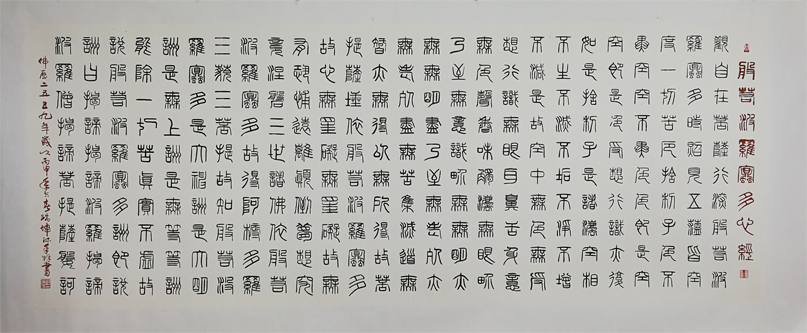 般若波羅蜜多心經
觀自在菩薩行深般若波
羅蜜多時照見五蘊皆空
度一切苦厄舍利子色不
異空空不異色色即是空
空即是色受想行識亦復
如是舍利子是諸法空相
不生不滅不垢不淨不增
不減是故空中無色無受
想行識無眼耳鼻舌身意
無色聲香味觸法無眼界
乃至無意識界無無明亦
無無明盡乃至無老死亦
無老死盡無苦集滅道無
智亦無得以無所得故菩
提薩埵依般若波羅蜜多
故心無罣礙無罣礙故無
有恐怖遠離顛倒夢想究
竟涅槃三世諸佛依般若
波羅蜜多故得阿耨多羅
三藐三菩提故知般若波
羅蜜多是大神咒是大明
咒是無上咒是無等等咒
能除一切苦真實不虛故
說般若波羅蜜多咒即說
咒曰揭諦揭諦波羅揭諦
波羅僧揭諦菩提薩婆訶
佛歷二五五九年歲次丙申季春書